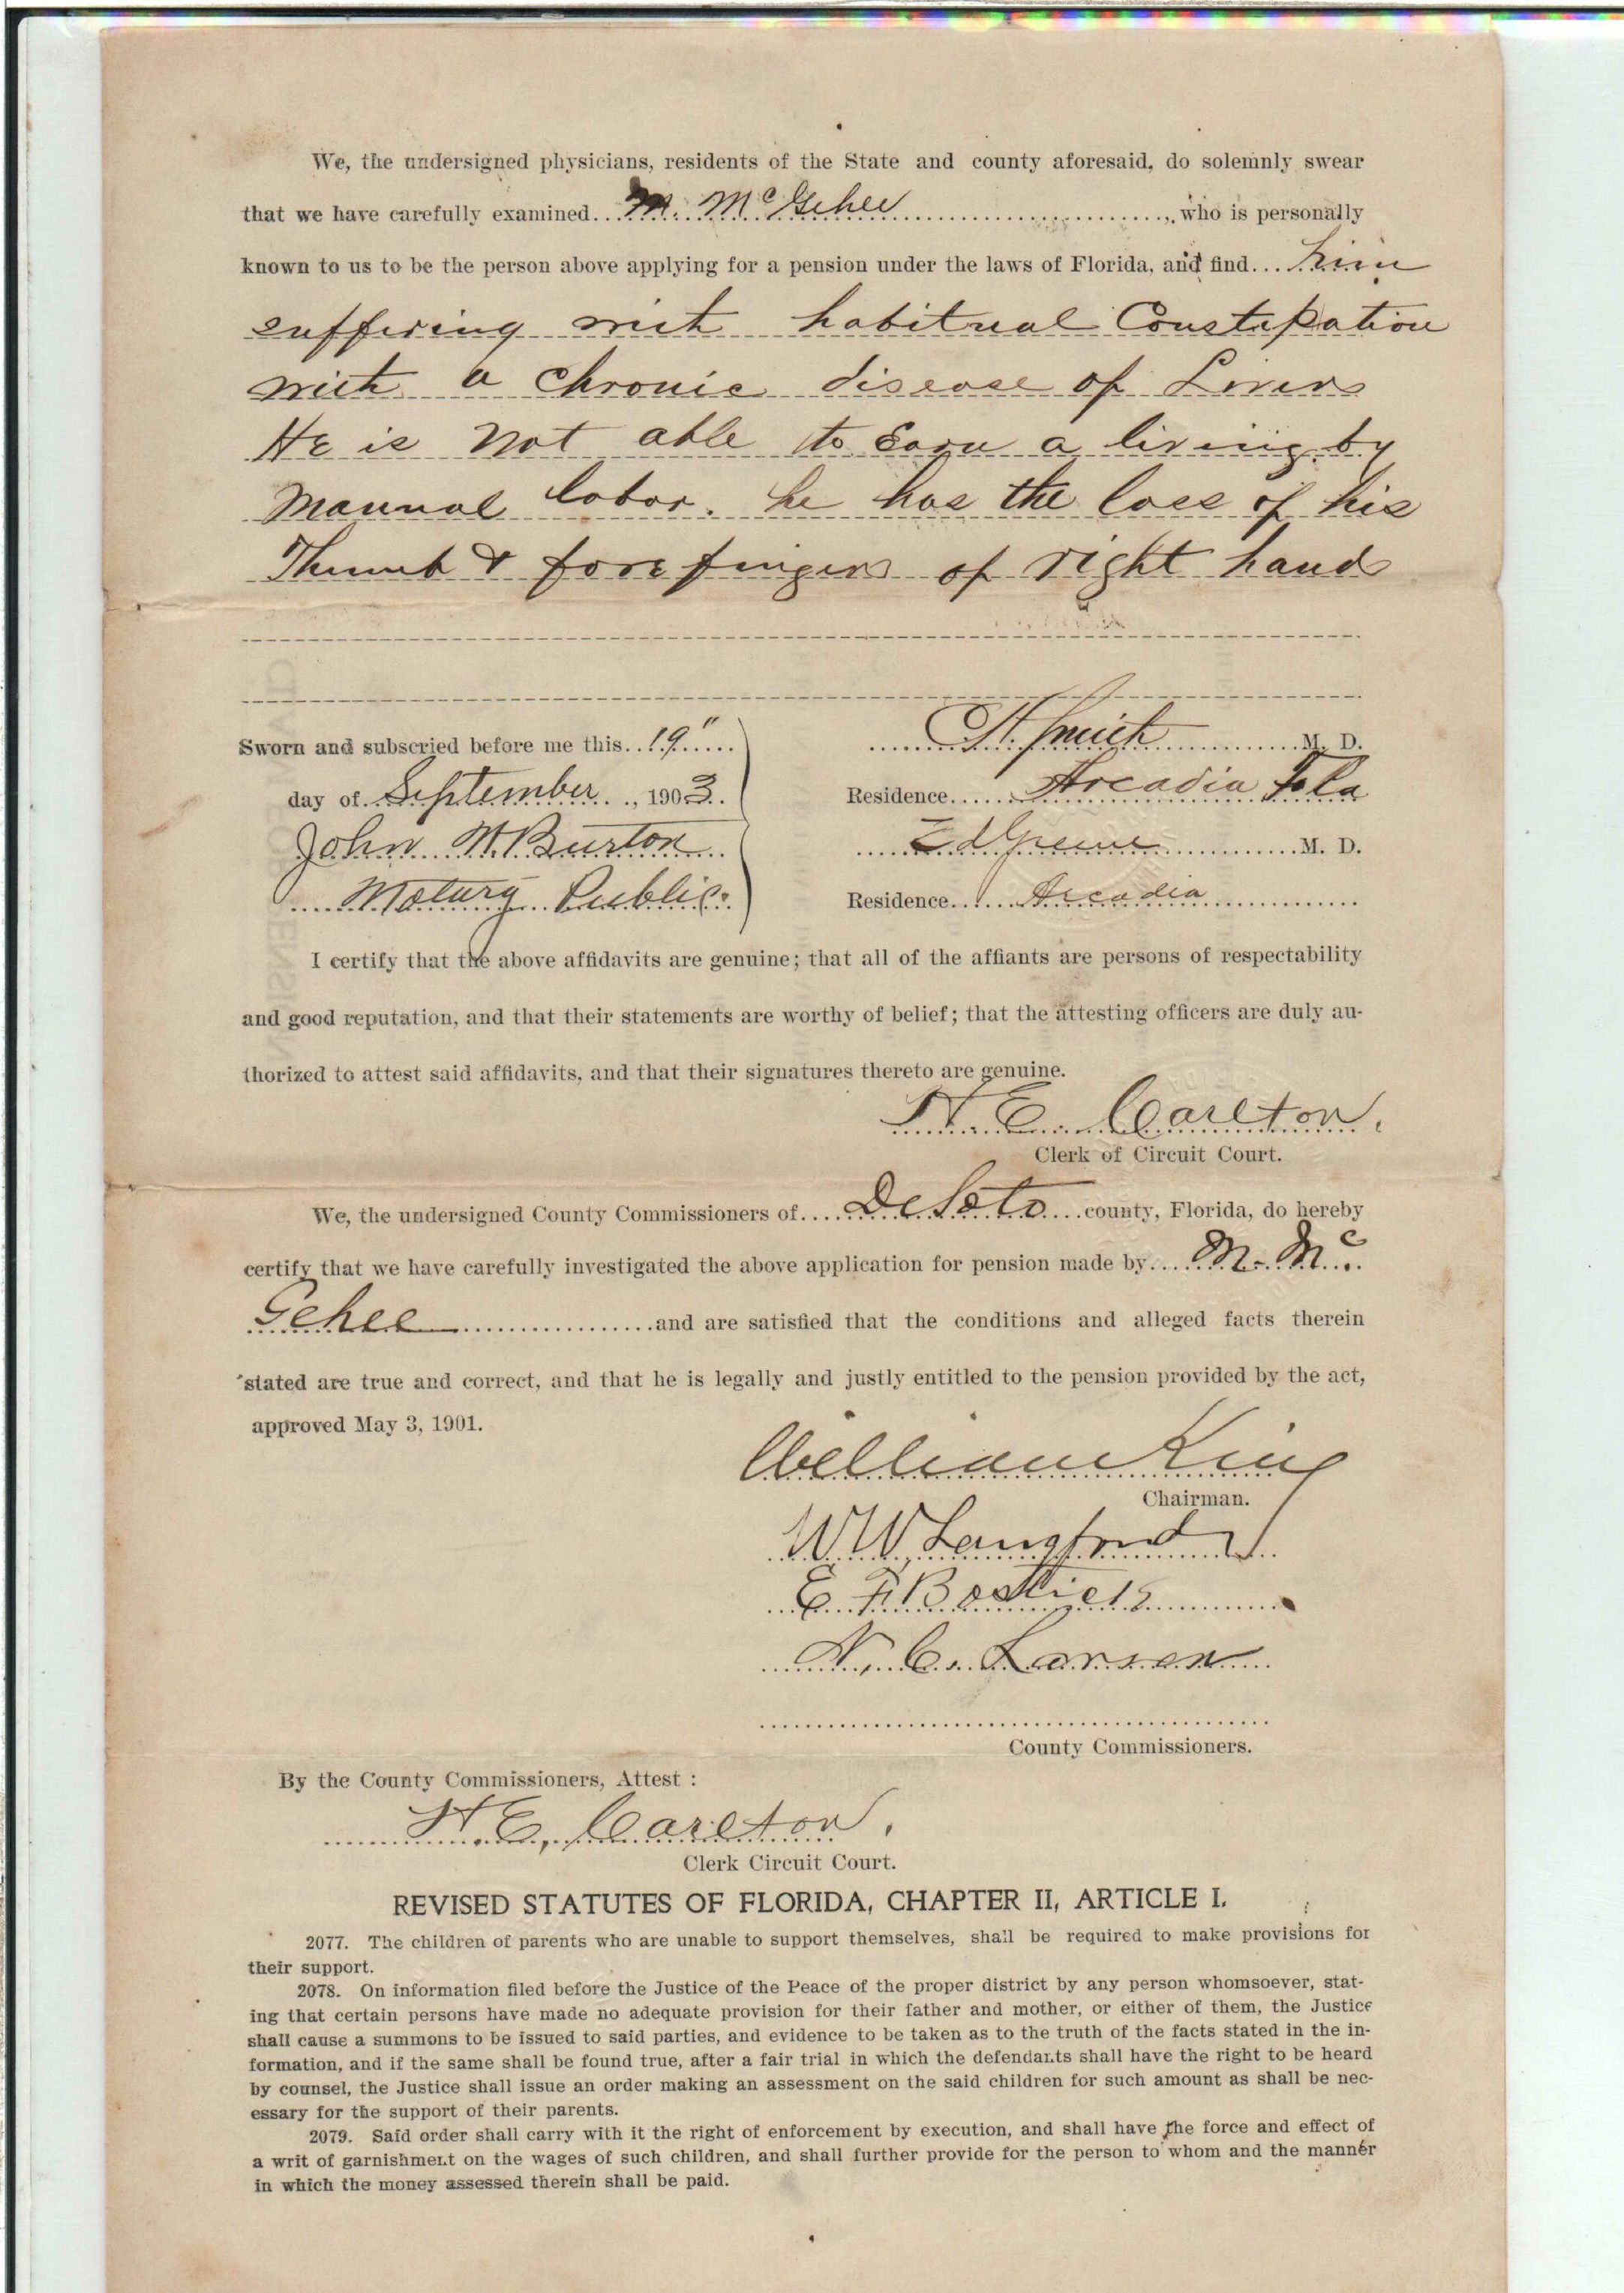 We, the undersigned physicians, residents of the State and county aforesaid, do solemnly swear
that we have carefully examined M. McGehee, who is personally
known to us to be the person above applying for a pension under the laws of Florida, and find him
suffering with habitual Constipation
with a Chronic disease of Liver
He is Not able to Earn a living by
Manual labor. he has the loss of his
Thumb & fore finger of right hand
Sworn and subscried before me this 19"
day of September, 1903.
John W. Burton
Notary Public
Smith M. D.
Residence Arcadia Fla
Greene M. D.
Residence Arcadia
I certify that the above affidavits are genuine; that all of the affiants are persons of respectability
and good reputation, and that their statements are worthy of belief; that the attesting officers are duly au-
thorized to attest said affidavits, and that their signatures thereto are genuine.
H. E. Carlton.
Clerk of Circuit Court.
We, the undersigned County Commissioners of DeSoto county, Florida, do hereby
certify that we have carefully investigated the above application for pension made by M. Mc
Gehee and are satisfied that the conditions and alleged facts therein
stated are true and correct, and that he is legally and justly entitled to the pension provided by the act,
approved May 3, 1901.
William King
Chairman.
W W Langford
E F Bostick
N. C. Larsen
County Commissioners.
By the County Commissioners, Attest :
H. E. Carlton.
Clerk Circuit Court.
REVISED STATUTES OF FLORIDA, CHAPTER II, ARTICLE I.
2077. The children of parents who are unable to support themselves, shall be required to make provisions for
their support.
2078. On information filed before the Justice of the Peace of the proper district by any person whomsoever, stat-
ing that certain persons have made no adequate provision for their father and mother, or either of them, the Justice
shall cause a summons to be issued to said parties, and evidence to be taken as to the truth of the facts stated in the in-
formation, and if the same shall be found true, after a fair trial in which the defendants shall have the right to be heard
by counsel, the Justice shall issue an order making an assessment on the said children for such amount as shall be nec-
essary for the support of their parents.
2079. Said order shall carry with it the right of enforcement by execution, and shall have the force and effect of
a writ of garnishment on the wages of such children, and shall further provide for the person to whom and the manner
in which the money assessed therein shall be paid.